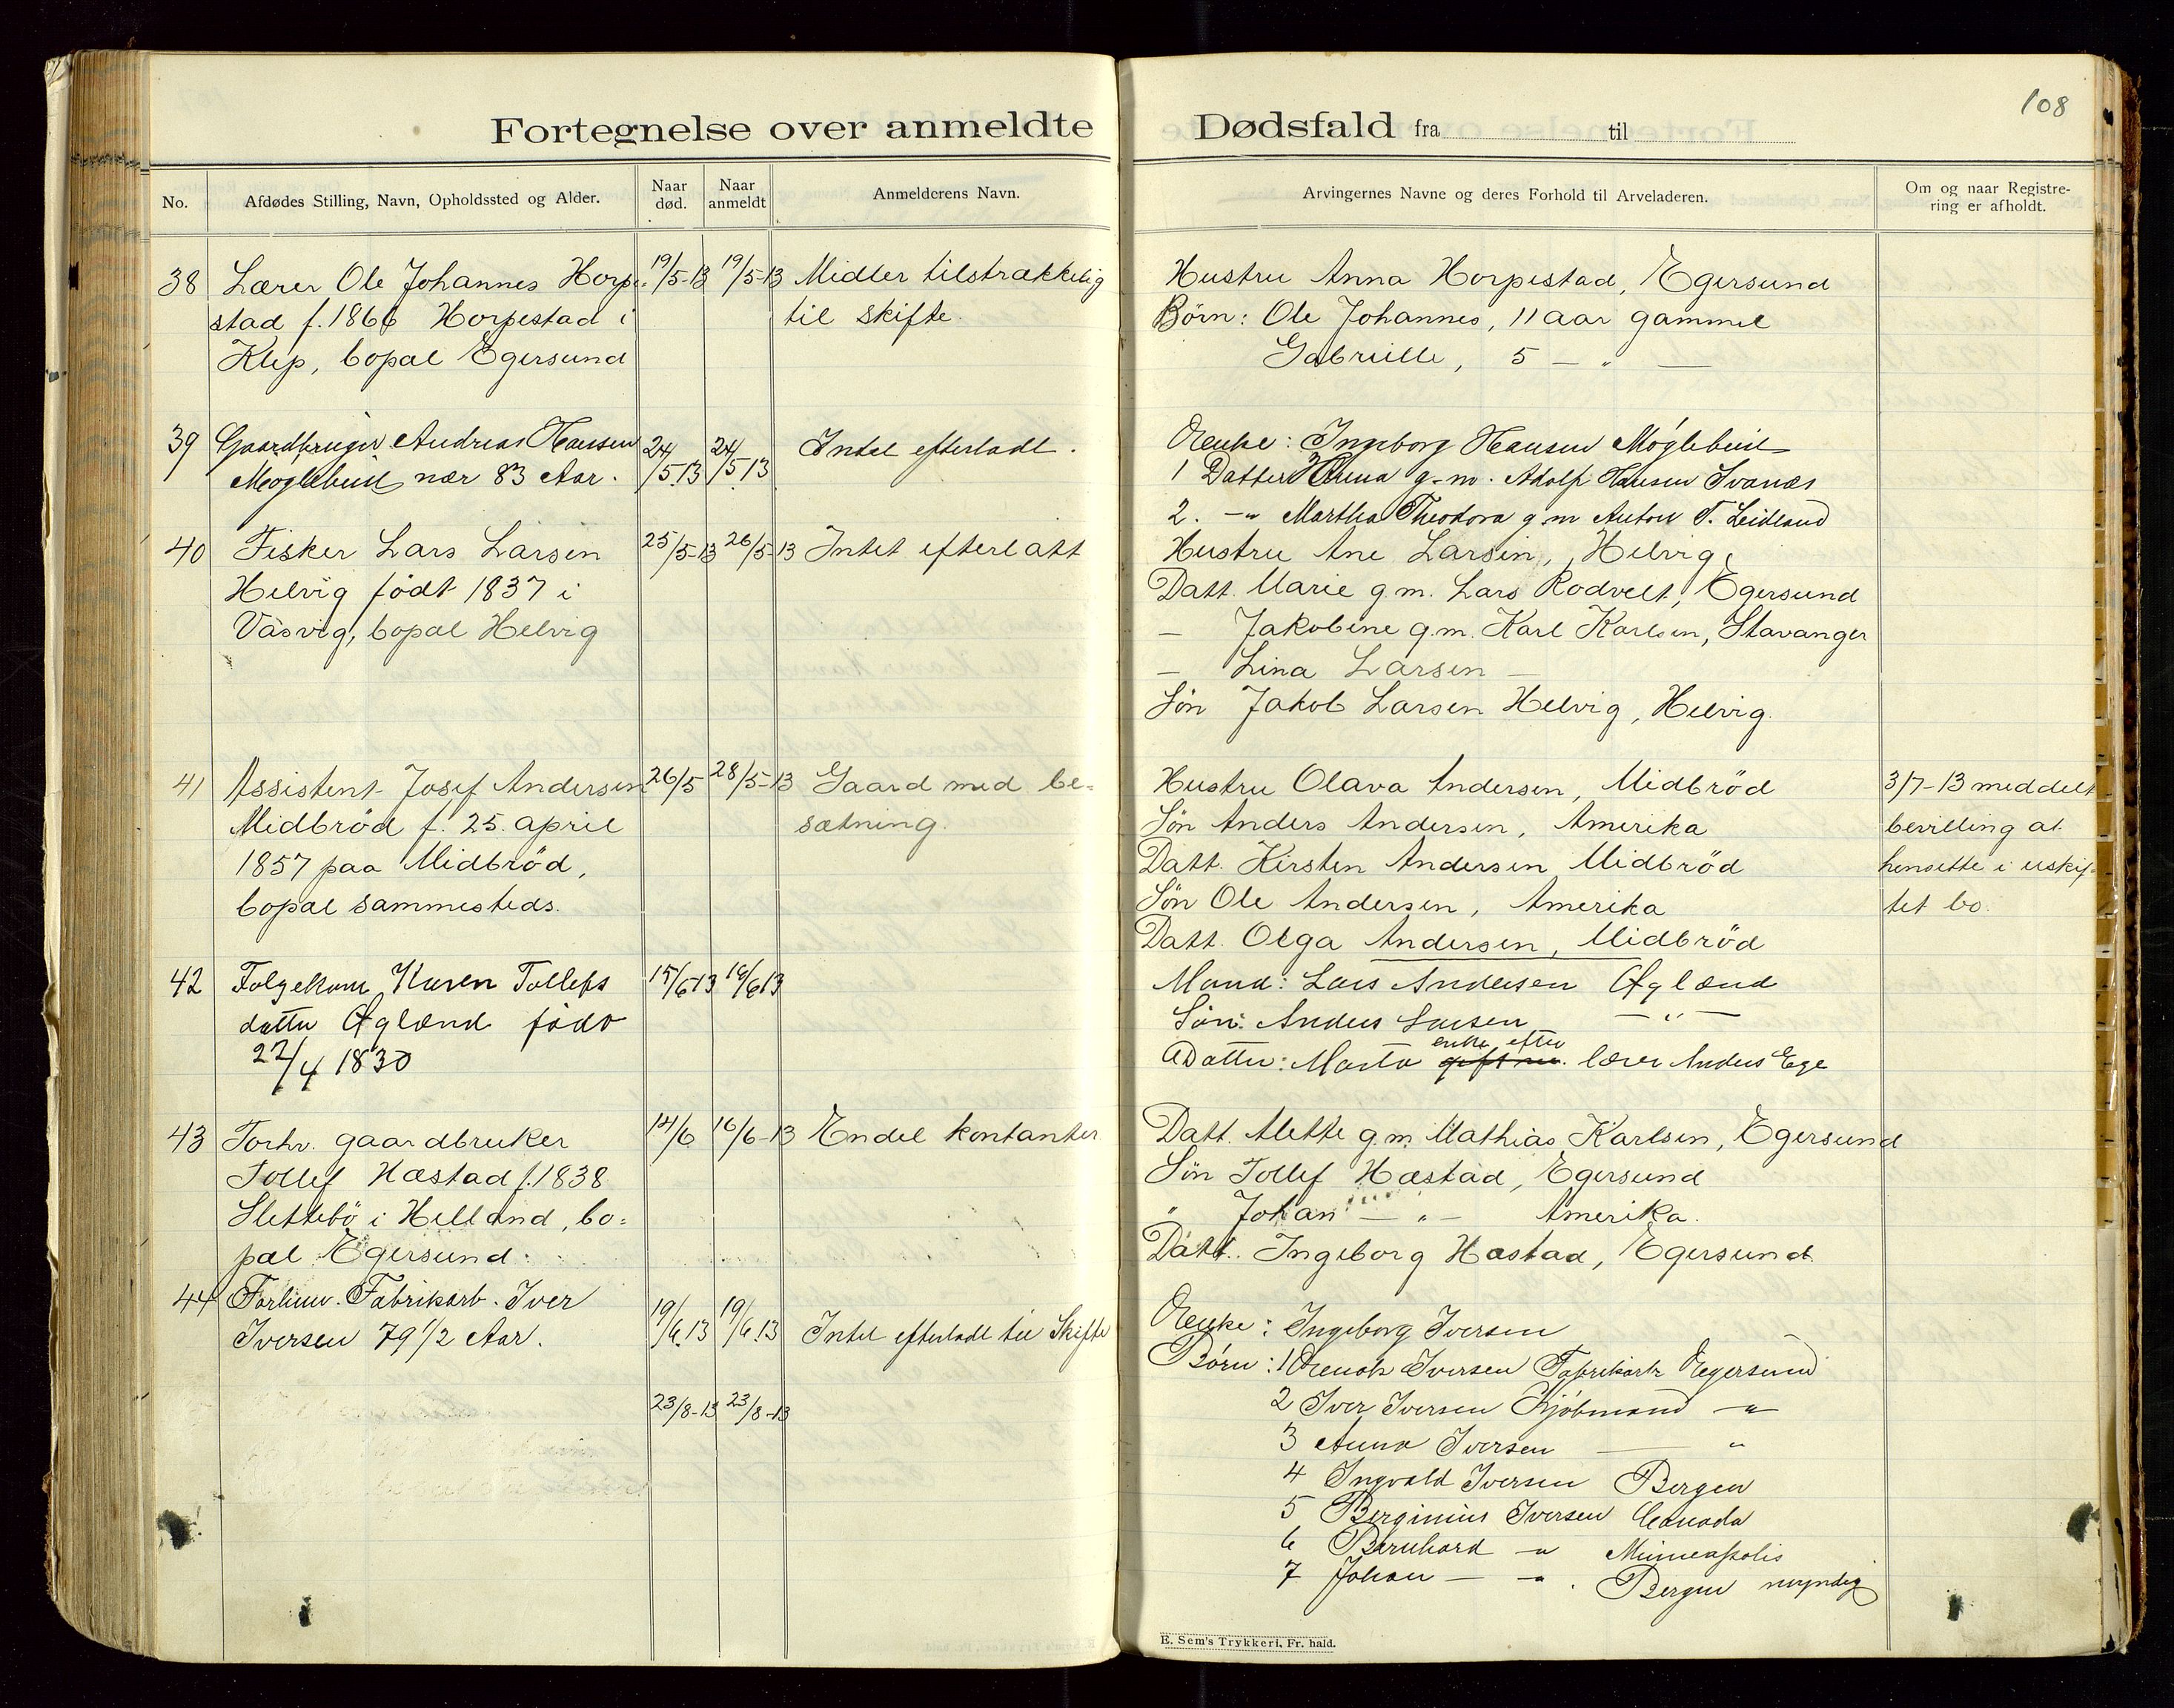 108
Fortegnelse over anmeldte Dødsfald fra til
No.
Afdødes Stilling, Navn, Opholdssted og Alder.
Naar død.
Naar anmeldt
Anmelderens Navn.
Arvingernes Navne og deres Forhold til Arveladeren.
Om og naar Registre-
ring er afholdt.
38 Lærer Ole Johannes Horpe- 19/5-13 19/5-13 Midler tilstrækkelig
stad f. 1866 Horpestad i til skifte.
Klep, bopæl Egersund
Hustru Anna Horpestad, Egersund
Börn: Ole Johannes, 11 aar gammel
Gabrielle, 5 — " —
39 Gaardbruger Andreas Hansen 24/5 13 24/5 13 Intet efterladt.
Møglebust nær 83 Aar.
Enke: Ingeborg Hansen Møglebust
1 Datter Anna g.m. Adolf Hansen Svanæs
2. —"— Martha Theodora g.m Anton T. Leidland
40 Fisker Lars Larsen 25/5-13 26/5-13 Intet efterlatt
Helvig födt 1837 i
Våsvig, bopæl Helvig
Hustru Ane Larsen, Helvig
Datt. Marie g.m. Lars Rodvelt, Egersund
— Jakobine g.m. Karl Karlsen, Stavanger
— Lina Larsen —
Sön Jakob Larsen Helvig, Helvig.
41 Assistent Josef Andersen 26/5 28/5-13 Gaard med be-
Midbröd f. 25. april sætning.
1857 paa Midbröd,
bopæl sammesteds.
Hustru Olava Andersen, Midbröd
Sön Anders Andersen, Amerika
Datt. Kirsten Andersen Midbröd
Sön Ole Andersen, Amerika
Datt. Olga Andersen, Midbröd
3/7-13 meddelt
bevilling at
hensitte i uskif-
tet bo.
42 Folgekone Karen Tollefs 15/6 13 16/6 13
datter Ægland född
22/4 1830
Mand: Lars Andersen Ægland
Sön: Anders Larsen — " —
Datter: Marta enke efter gift m. lærer Anders Ege
43 Forhv. gaardbruker 14/6 16/6-13 Endel kontanter
Tollef Hæstad f. 1838
Slettebö i Helland, bo-
pæl Egersund.
Datt. Mette g.m. Mathias Karlsen, Egersund
Sön Tollef Hæstad, Egersund
" Johan — " — Amerika.
Datt. Ingeborg Hæstad, Egersund.
44 Fabrikarb. Iver
Iversen 79 1/2 Aar. 19/6.13 19/6.13 Intet efterladt til Skifte
23/8-13 23/8-13
Enke: Ingeborg Iversen
Børn: 1 Enok Iversen Fabrikarb Egersund
2 Iver Iversen Kjøbmand —"—
3 Anna Iversen — "
4 Ingvald Iversen Bergen
5 Berginius Iversen Canada
6 Bernhard —"— Minneapolis
7 Johan — " — Bergen myndig
E. Sem's Trykkeri, Fr. hald.